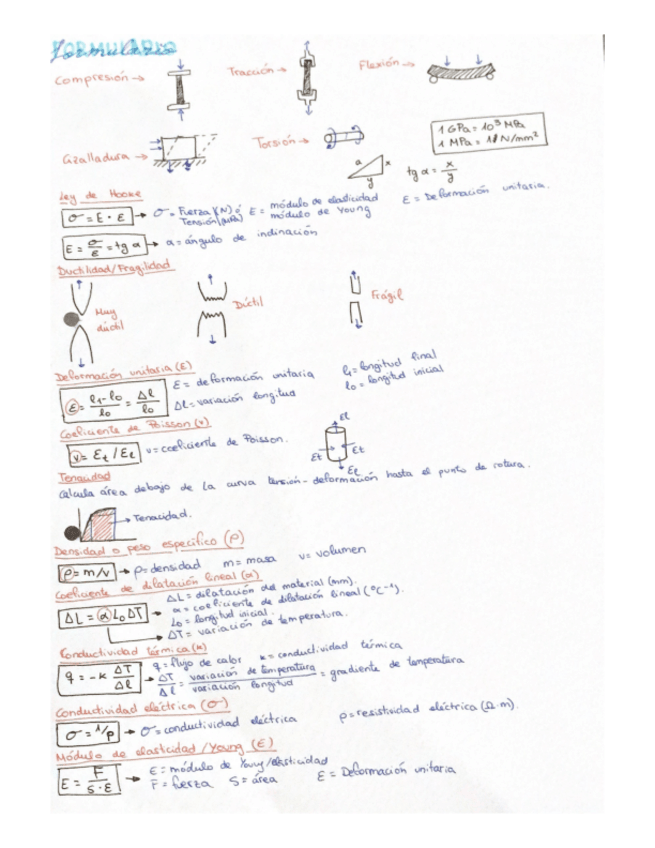 FORMULARIO
formulario
Compresión →
Tracción →
Flexión →
Cizalladura →
Torsión →
1 GPa = 10³ MPa
1 MPa = 1 N/mm²
α x y
tg α = x/y
Ley de Hooke
σ = E · ε → σ = Fuerza (N) ó E = módulo de elasticidad ε = Deformación unitaria.
Tensión módulo de Young
E = σ/ε = tg α → α = ángulo de inclinación
Ductilidad/Fragilidad
Muy dúctil
Dúctil
Frágil
Deformación unitaria (ε)
ε = (l₁-l₀)/l₀ = Δl/l₀
ε = deformación unitaria l₁ = longitud final
Δl = variación longitud l₀ = longitud inicial
Coeficiente de Poisson (v)
v = εt / εl v = coeficiente de Poisson.
εl
εt εt
εl
Tenacidad
Calcula área debajo de la curva tensión - deformación hasta el punto de rotura.
→ Tenacidad.
Densidad o peso específico (ρ)
ρ = m/v → ρ = densidad m = masa v = volumen
Coeficiente de dilatación lineal (α)
ΔL = α L₀ ΔT → ΔL = dilatación del material (mm).
α = coeficiente de dilatación lineal (°C⁻¹).
L₀ = longitud inicial.
ΔT = variación de temperatura.
Conductividad térmica (κ)
q = -κ ΔT/Δl → q = flujo de calor κ = conductividad térmica
ΔT/Δl = variación de temperatura/variación longitud = gradiente de temperatura
Conductividad eléctrica (σ)
σ = 1/ρ → σ = conductividad eléctrica ρ = resistividad eléctrica (Ω.m).
Módulo de elasticidad /Young (E)
E = F/S·ε → E = módulo de Young/elasticidad
F = fuerza S = área ε = Deformación unitaria